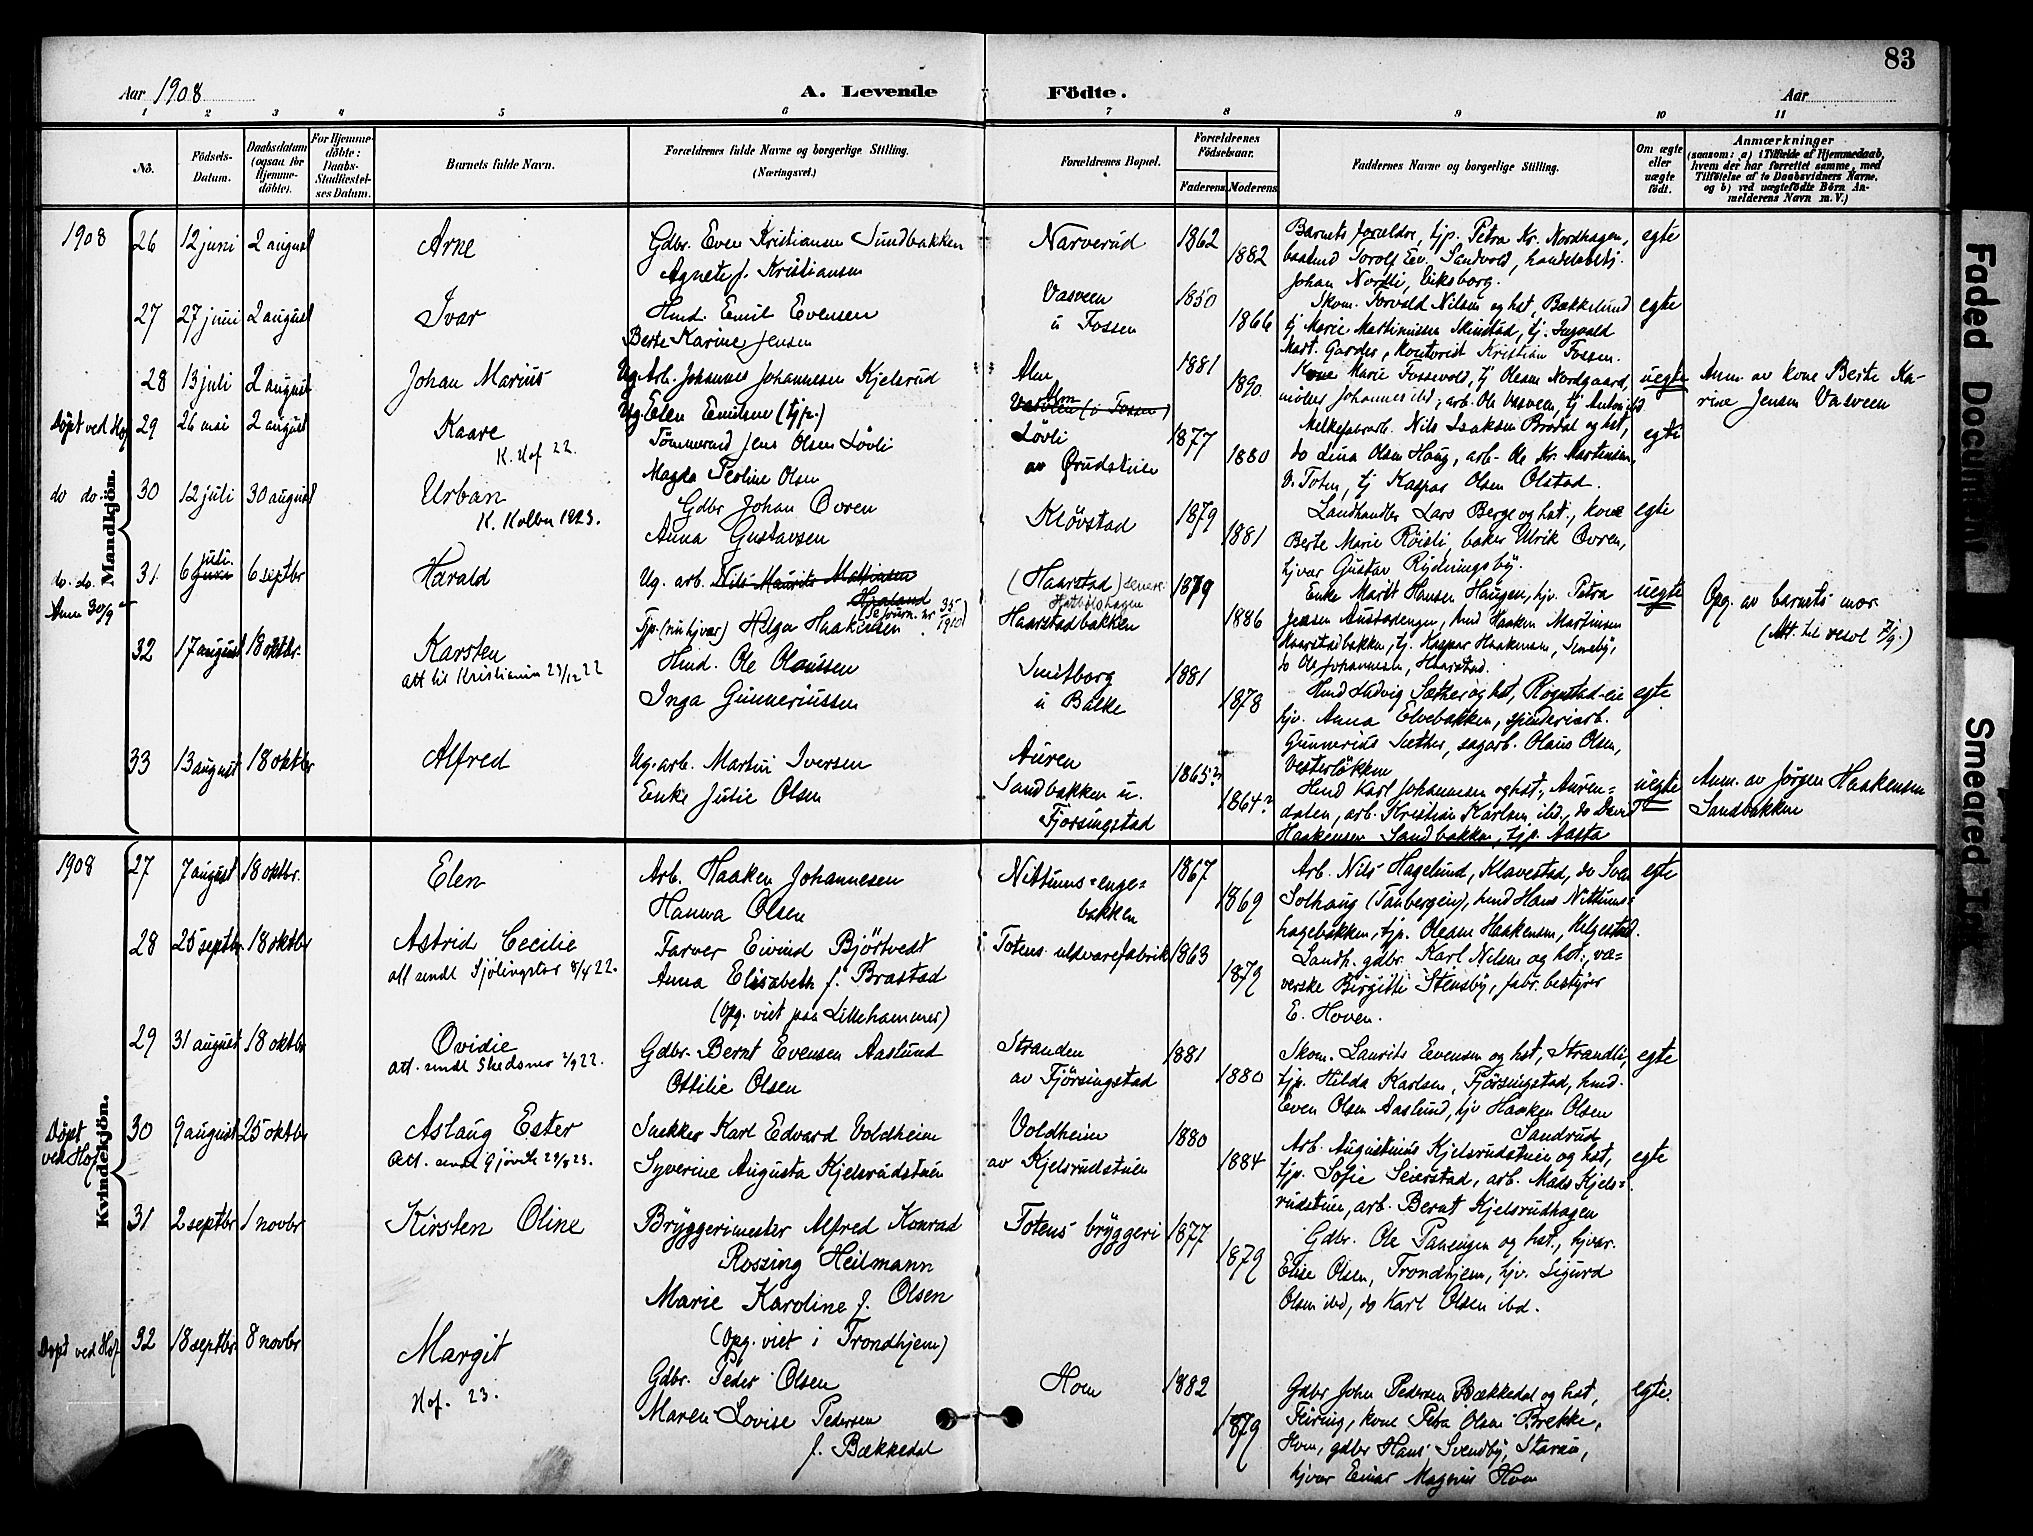 83
Aar 1908
A. Levende Födte.
Aar
1 2 3 4 5 6 7 8 9 10 11
No.
Födsels-Datum.
Daabsdatum (ogsaa for Hjemme-döbte).
For Hjemme-döbte: Daabs-Stadfæstel-ses Datum.
Barnets fulde Navn.
Forældrenes fulde Navne og borgerlige Stilling. (Næringsvei.)
Forældrenes Bopæl.
Forældrenes Födselsaar.
Faderens Moderens
Faddernes Navne og borgerlige Stilling.
Om ægte eller uægte födt.
Anmærkninger
(saasom: a) i Tilfælde af Hjemmedaab, hvem der har forrettet samme, med Tilföielse af to Daabsvidners Navne, og b) ved uægtefödte Börn An-melderens Navn m. V.)
Mandkjön.
1908 26 12 juni 2 august Arne
Gdbr. Even Kristiansen Sundbakken
Agnete f. Kristiansen
Narverud 1862 1882
Barnets forældre, tjp. Petra Kr. Nordhagen,
Johan Nordli, Eiksborg.
egte
27 27 juni 2 august Ivar
Hmd. Emil Evensen
Berte Karine Jensen
Vasveen
u Fossen
1850 1866
Skom. Torvald Nilsen og hst, Bækkelund
tj Marie Martinussen Skiustad, tj. Ingvald
Mart. Garder, kontorist Kristian Fossen.
egte
28 13 juli 2 august Johan Marius
Ug. Arb. Johannes Johannesen Kjelsrud
Ug. Elen Emilene (tjp.)
Alm
Alm
Vasveen (u Fossen)
1881 1890
Kone Marie Fossevold, tj Oleane Nordgaard,
møller Johannes ibd, arb. Ole Vasveen, tj Anton ibd
uegte
Anm. av kone Berte Ka-
rine Jensen Vasveen
Døpt ved Hof 29 26 mai 2 august Kaare
K. Hof 22.
Tømmermd Jens Olsen Løvli
Magda Teoline Olsen
Løvli
av Grudstuen
1877 1880
Melkefabrarb. Nils Isaksen Brodal og hst,
do Lina Olsen Haug, arb. Ole Kr. Martinsen,
V. Toten, tj Kaspar Olsen Olstad.
egte
do do. 30 12 juli 30 august Urban
K. Kolbu 1923.
Gdbr Johan Ovren
Anna Gustavsen
Kløvstad
1879 1881
Landhandler Lars Berge og hst, kone
Berte Marie Røisli, baker Ulrik Ovren,
hjvar Gustav Rydningsby.
egte
do. do. 31 6 juli 6 septbr Harald
Anm 30/9
Ug. arb. Nils Maurits Mathisen
Tjp. (nu hjvar) Helga Haakensen
(Haarstad) senere
Haarstadbakken
1879 1886
Enke Marit Hansen Haugen, hjv. Petra
Jensen Austadenger, hmd Haaken Martinsen
Haarstadbakken, tj. Kaspar Haakensen, Smeby,
do Ole Johannesen, Haarstad.
uegte
Opg. av barnets mor
(Att. til vesol 7/9.)
32 17 august 18 oktbr. Karsten
att til Kristiania 23/12 22
Hmd. Ole Olaussen
Inga Gunneriussen
Smitborg
u Balke
1881 1878
Hmd Ludvig Sæther og hst, Rognstad-eie
hjv. Anna Elvebakken, spinderiarb.
Gunnerius Sæther, sagarb. Olaus Olsen,
Vesterløkken
egte
33 13 august 18 oktbr Alfred
Ug. arb. Martin Iversen
Enke Julie Olsen
Auren
Sandbakken u.
Fjorsingstad
1865? 1864?
Hmd Karl Johannesen og hst, Auren=
dalen, arb. Kristian Karlsen ibd, do David
Haakensen Sandbakken, tjp. Aasta
uegte
Anm. av Jørgen Haakensen
Sandbakken
Kvindekjön.
1908 27 7 august 18 oktbr. Elen
Arb. Haaken Johannesen
Hanna Olsen
Nittums=enge=
bakken
1867 1869
Arb. Nils Hagelund, Klavestad, do Sven
Solhaug (Taubergeie), hmd Hans Nittums=
hagebakken, tjp. Oleane Haakensen, Helgestad.
egte
28 25 septbr. 18 oktbr Astrid Cecilie
att sendt Sjølingstad 8/4 22.
Farver Eivind Bjørtvedt
Anna Elisabeth f. Brastad
(Opg. viet paa Lillehammer)
Totens uldvarefabrik
1863 1879
Landh. gdbr. Karl Nilsen og hst, væ=
verske Birgitte Stensby, fabr. bestyrer
E. Hoven.
29 31 august 18 oktbr Ovidie
att. sendt Skedsmo 2/9 22.
Gdbr. Bernt Evensen Aaslund
Ottilie Olsen
Stranden
av Fjørsingstad
1881 1880
Skom. Laurits Evensen og hst, Strandli,
tjp. Hilda Karlsen, Fjørsingstad, hmd.
Even Olsen Aaslund, tjv Haaken Olsen
Sandrud
egte
Døpt ved Hof 30 9 august 25 oktbr Aslaug Ester
Att. sendt Gjøvik 23/8 23.
Snekker Karl Edvard Voldheim
Syverine Augusta Kjelsrudstuen
Voldheim
av Kjelsrudstuen
1880 1884
Arb. Augustinus Kjelsrudstuen og hst,
tjp. Sofie Seierstad, arb. Mads Kjels=
rudstuen, arb. Bernt Kjelsrudhagen
egte
31 2 septbr 1 novbr Kirsten Oline
Bryggerimester Alfred Konrad
Rossing Heilmann
Marie Karoline f. Olsen
(Opg. viet i Trondhjem)
Totens bryggeri
1877 1879
Gdbr. Ole Paneengen og hst., hjvar.
Elise Olsen, Trondhjem, hjv. Sigurd
Olsen ibd, do Karl Olsen ibd.
Døpt ved Hof 32 18 septbr. 8 novbr Margit
Hof. 23.
Gdbr. Peder Olsen
Maren Lovise Pedersen
f. Bækkedal
Hom
1882 1879
Gdbr John Pedersen Bækkedal og hst,
Feiring, kone Petra Olsen Brekke,
Hom, gdbr Hans Svendby, Starum,
hjvar Einar Magnus Hom
egte.
Faded Document
Smeared Text